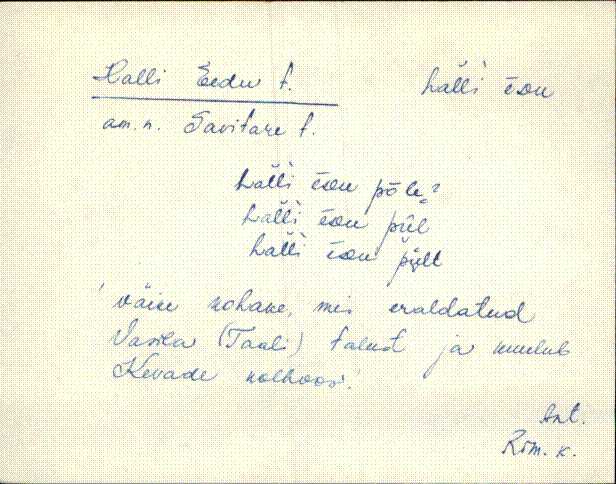 Halli Eedu t. hälli ēdu
am. n. Savitare t.
hälli ēdu põle?
hälli ēdu pūl
hälli ēdu püll
'väike kohake, mis eraldatud
Vasila (Taali) talust ja kuulub
Kevade kolhoosi.'
Ant.
Rõm. k.